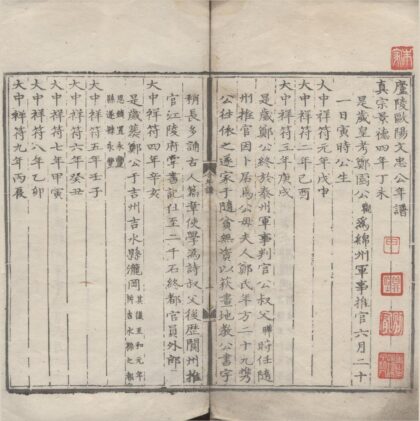 廬陵歐陽文忠公年譜
真宗景德四年丁未
是歲皇考鄭國公觀為綿州軍事推官六月二十
一日寅時公生
大中祥符元年戊申
大中祥符二年己酉
大中祥符三年庚戌
是歲鄭公終於泰州軍事判官公叔父曄時任隨
州推官因卜居焉公母夫人鄭氏年方二十九攜
公往依之遂家于隨貧無資以荻畫地教公書字
稍長多誦古人篇章使學為詩叔父後歷閬州推
官江陵府掌書記仕至二千石終都官員外郎
大中祥符四年辛亥
是歲葬鄭公于吉州吉水縣瀧岡
其後至和元年
析吉水縣之報
恩鎮置永豐
縣遂隸永豐
大中祥符五年壬子
大中祥符六年癸丑
大中祥符七年甲寅
大中祥符八年乙卯
大中祥符九年丙辰